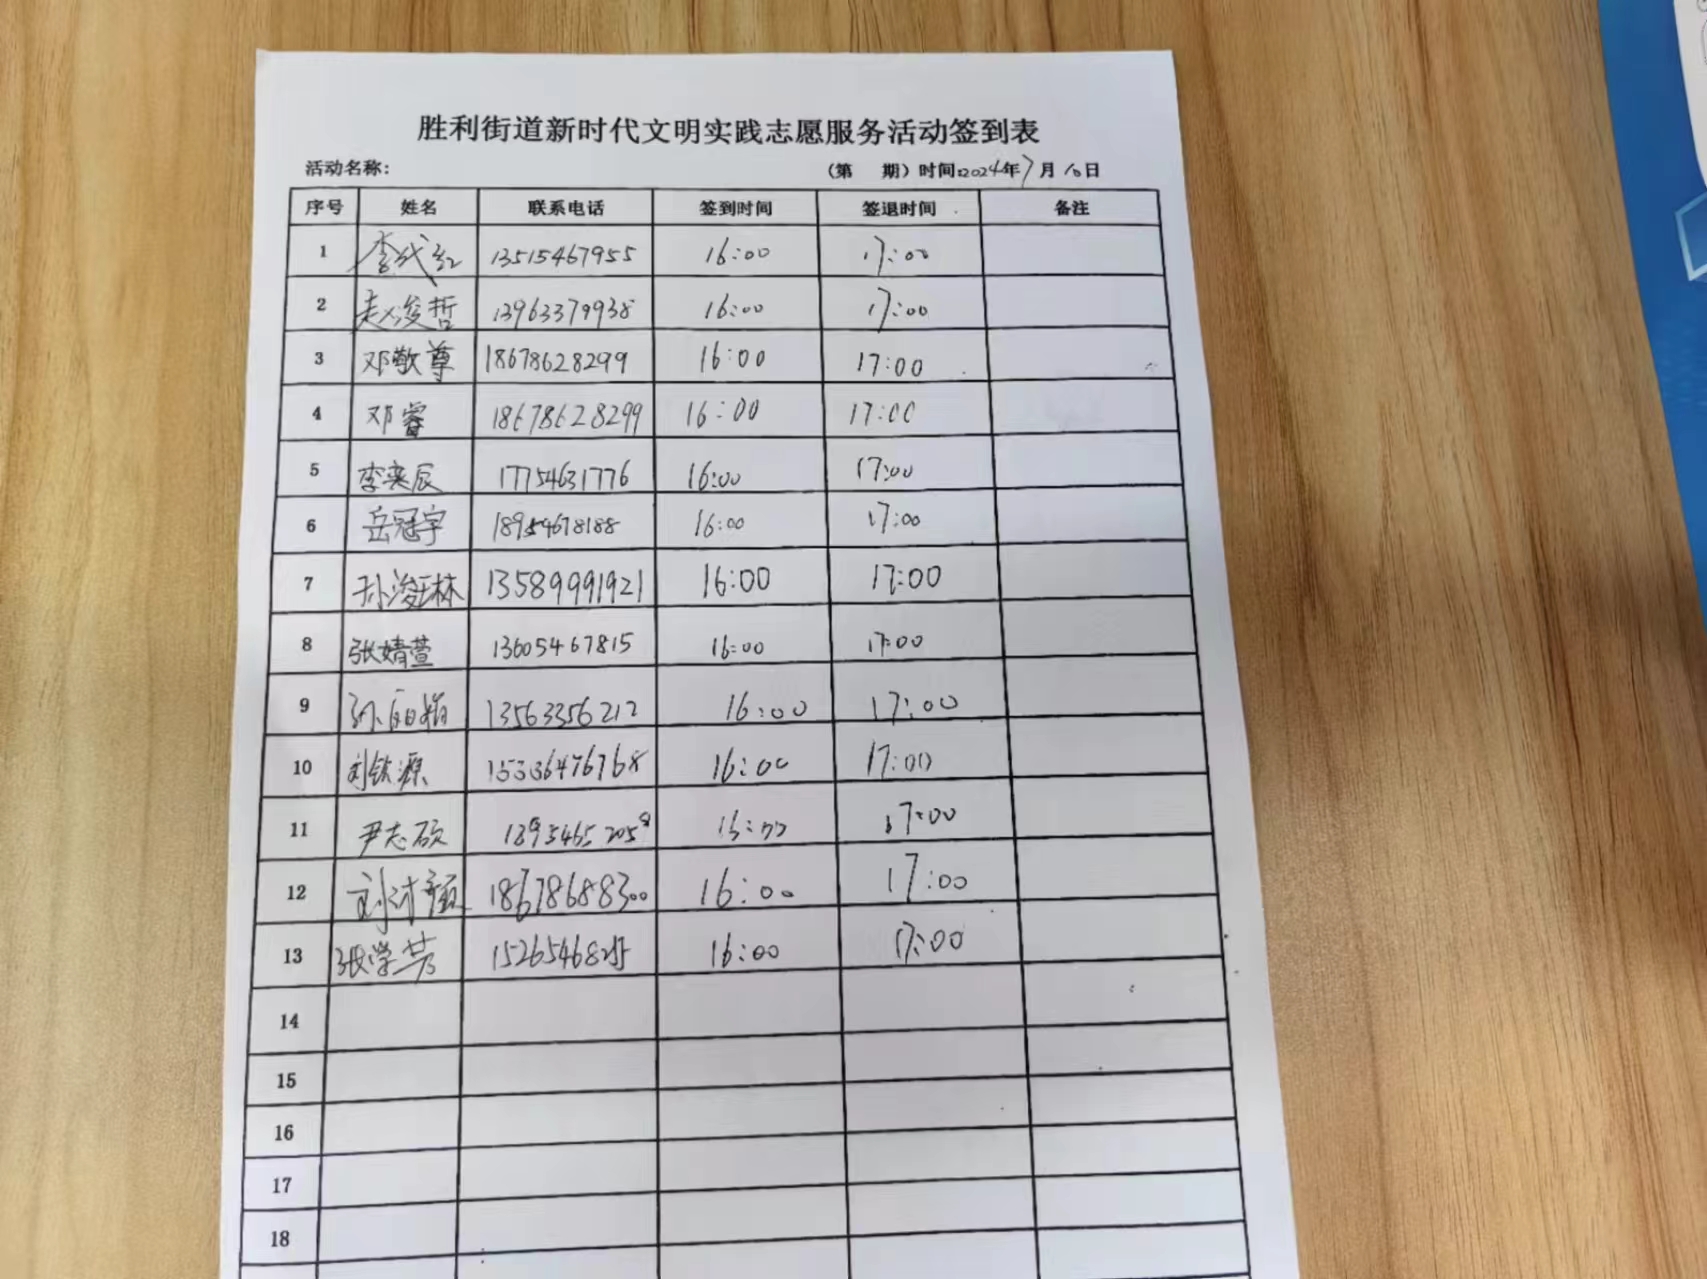 胜利街道新时代文明实践志愿服务活动签到表
活动名称: (第 期) 时间:2024年7月10日
序号 姓名 联系电话 签到时间 签退时间 备注
1 李代红 13515467955 16:00 17:00
2 赵俊哲 13963379938 16:00 17:00
3 邓敬尊 18678628299 16:00 17:00
4 邓睿 18678628299 16:00 17:00
5 李奕辰 17754631776 16:00 17:00
6 岳冠宇 18954678188 16:00 17:00
7 孙浚桩林 13589991921 16:00 17:00
8 张婧萱 13605467815 16:00 17:00
9 13563356212 16:00 17:00
10 刘钦源 15336476768 16:00 17:00
11 尹志硕 17:00
12 18678688300 16:00 17:00
13 张学芳 16:00 17:00
14
15
16
17
18